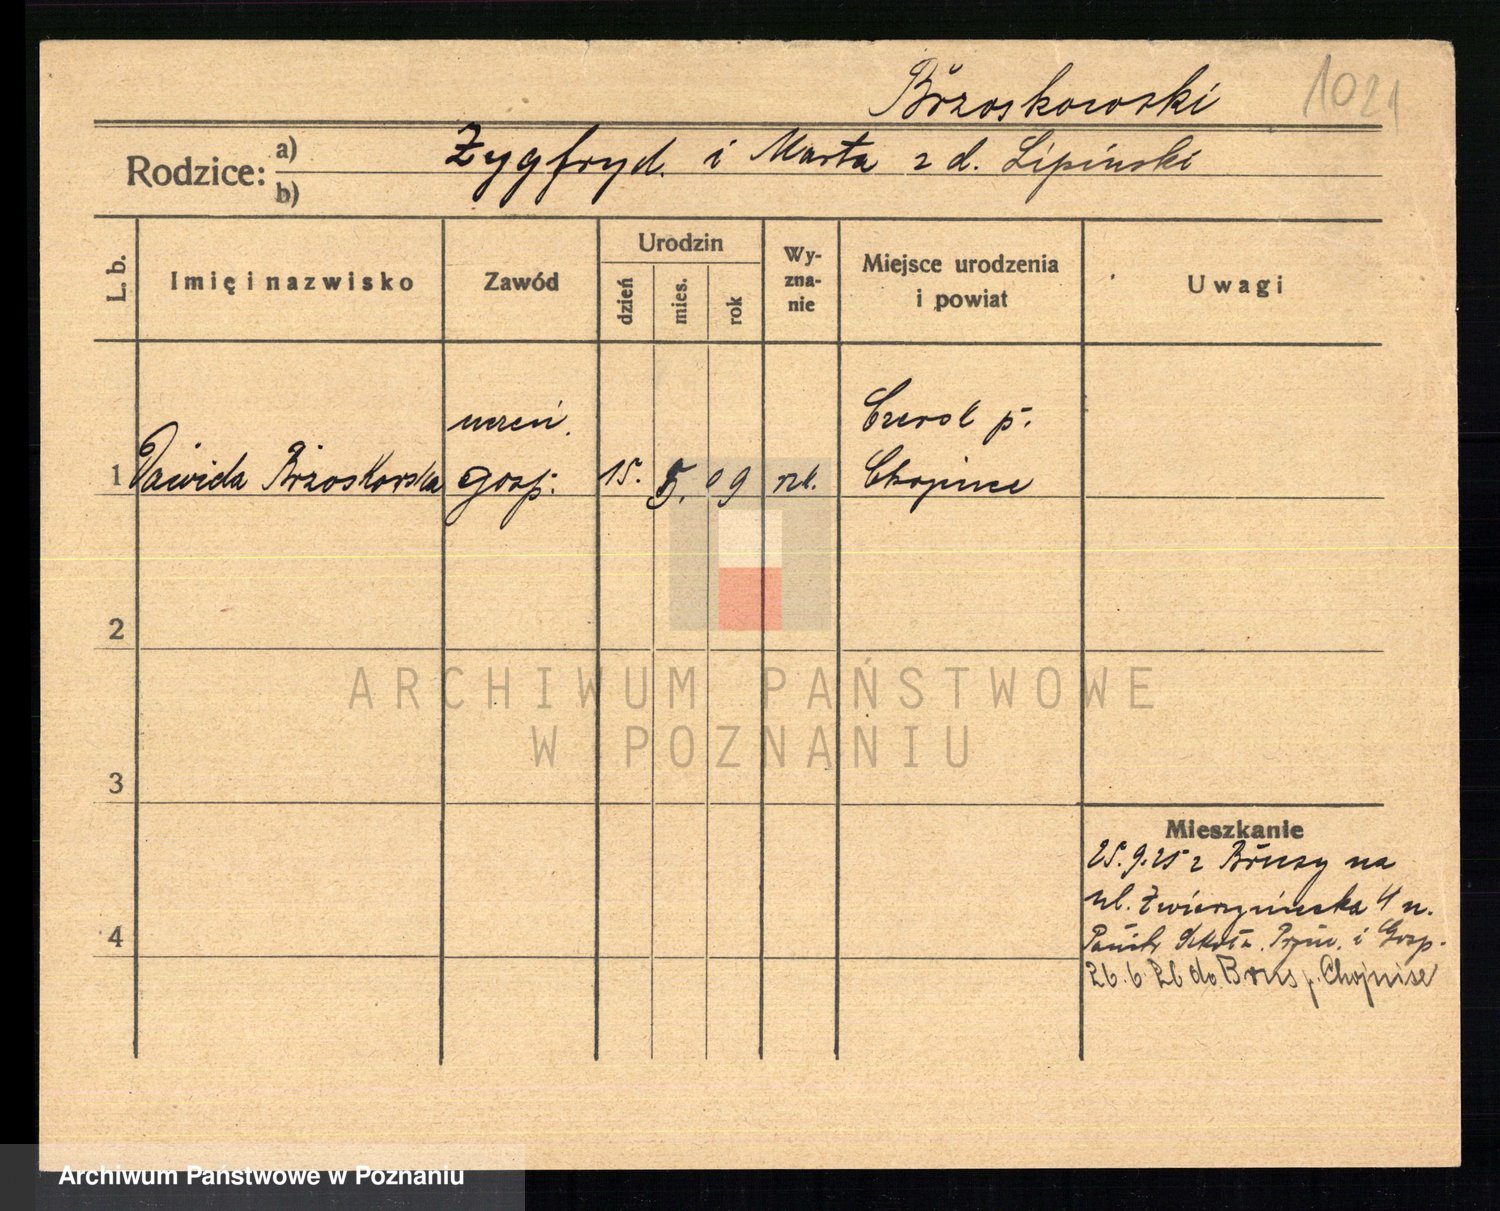 Brzoskowski
1021
Rodzice: a) b)
Zygfryd. i Marta z d. Lipinski
L. b.
Imię i nazwisko
Zawód
Urodzin
dzień
mies.
rok
Wy-
zna-
nie
Miejsce urodzenia
i powiat
Uwagi
uczeń.
Czersk p.
1 Brzoskowska gosp. 15. 5. 09 rk. Chojnice
2
ARCHIWUM PAŃSTWOWE
W POZNANIU
3
Mieszkanie
25.9.25 z Brusy na
ul. Zwierzyniecka 4 u.
4
Szkoła i Gosp.
26.6.26 do Brus p. Chojnice
Archiwum Państwowe w Poznaniu